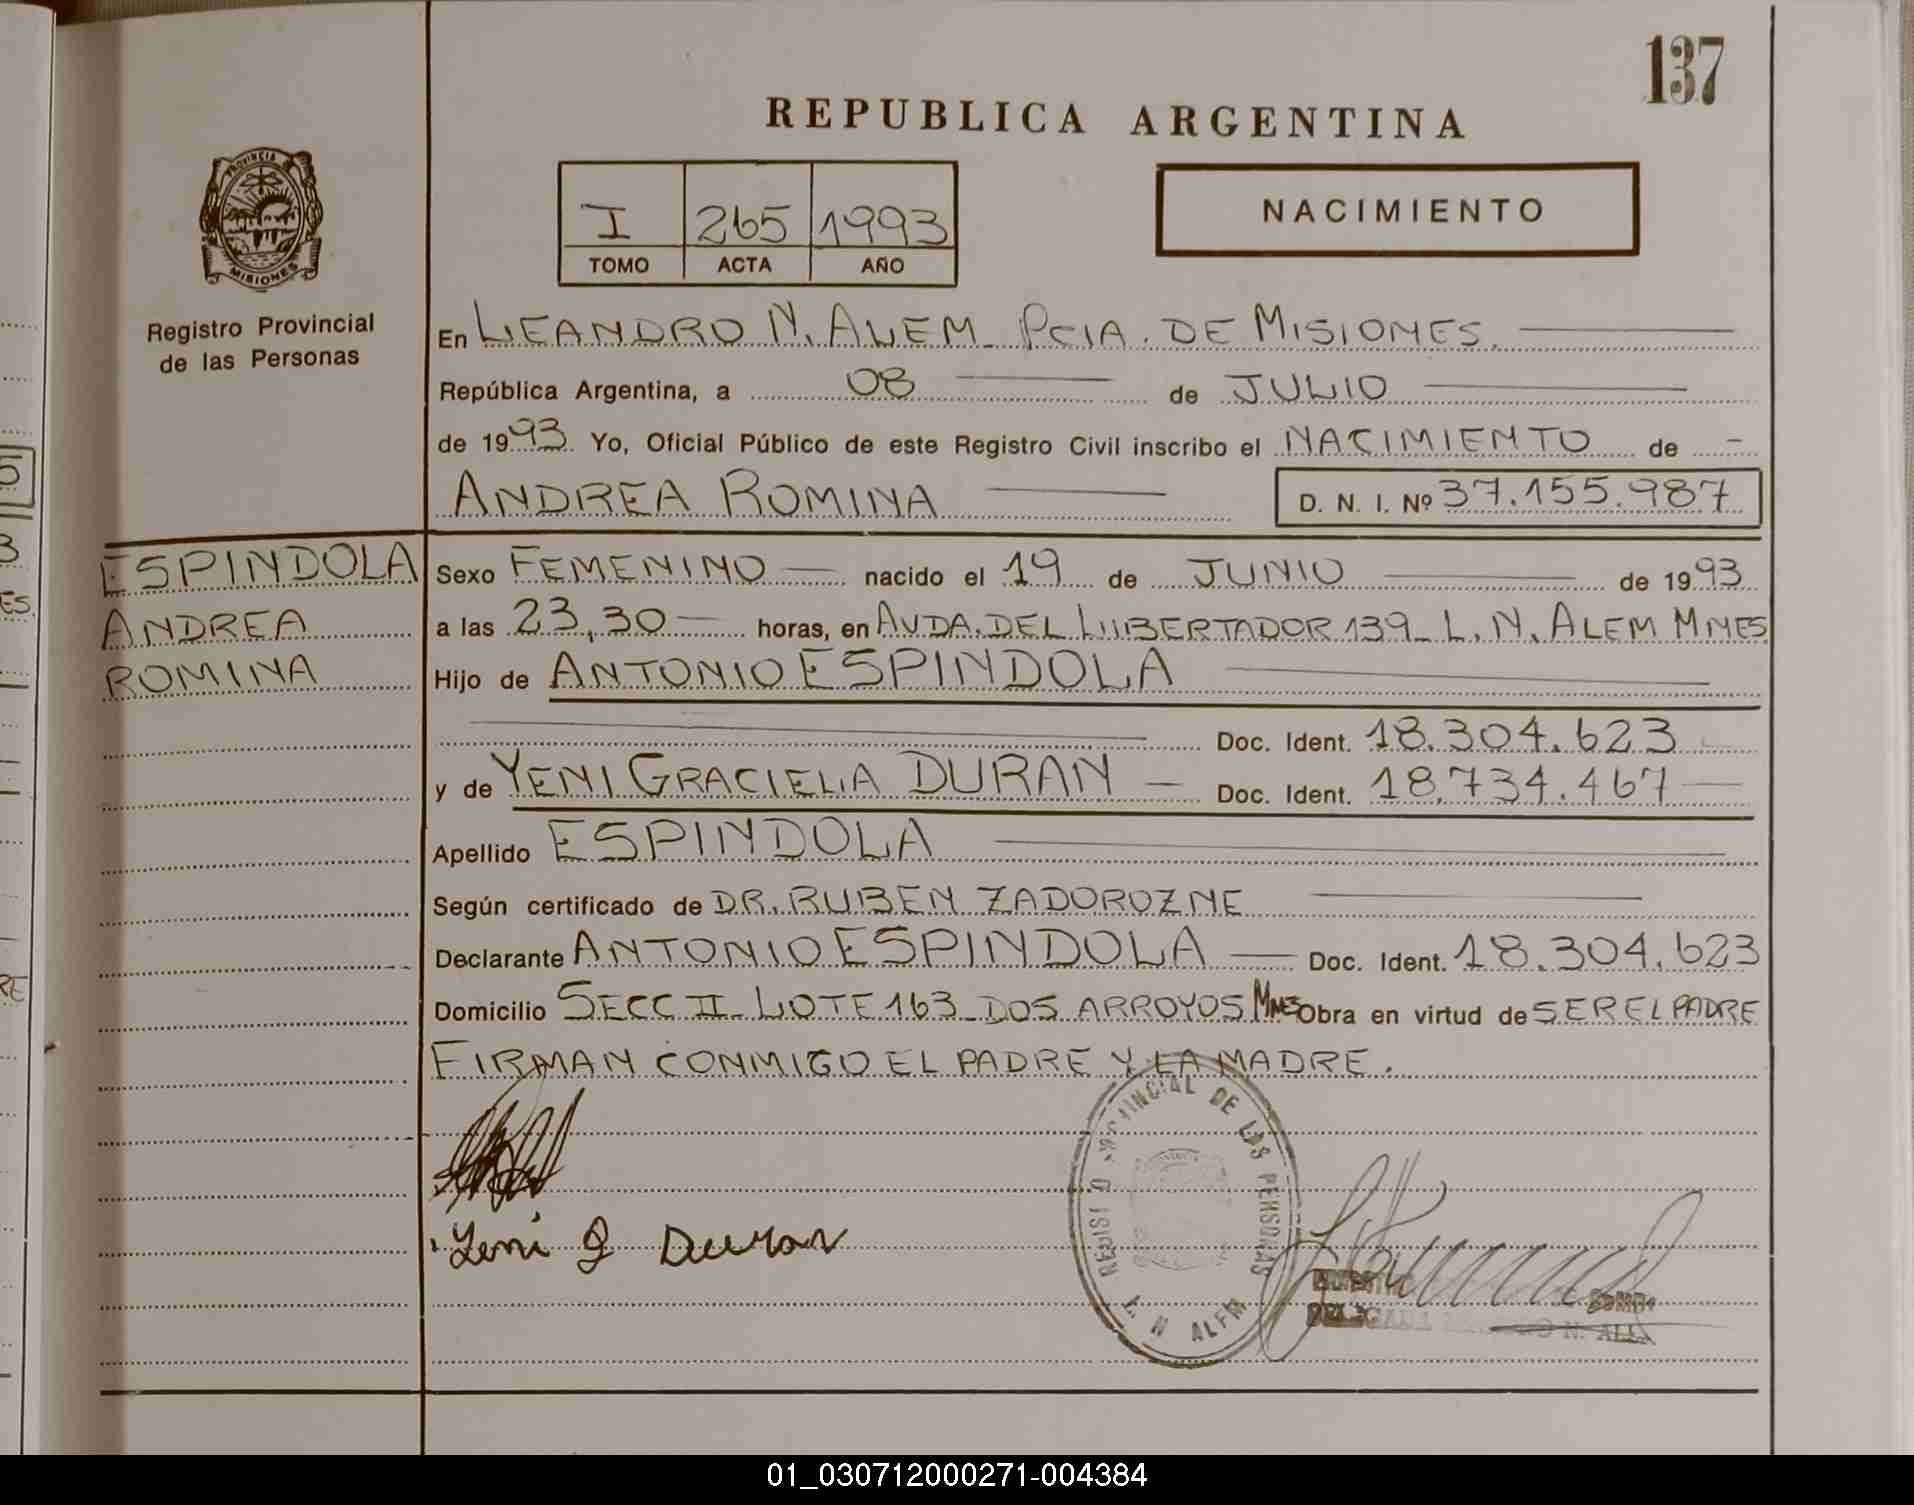 137
REPUBLICA ARGENTINA
PROVINCIA DE
MISIONES
Registro Provincial
de las Personas
I 265 1993
TOMO ACTA AÑO
NACIMIENTO
En LEANDRO N. ALEM - PCIA. DE MISIONES.
República Argentina, a 08 de JULIO
de 1993. Yo, Oficial Público de este Registro Civil inscribo el NACIMIENTO de -
ANDREA ROMINA D. N. I. Nº 37.155.987
ESPINDOLA
ANDREA
ROMINA
Sexo FEMENINO nacido el 19 de JUNIO de 1993
a las 23,30 horas, en AVDA. DEL LIBERTADOR 139 - L. N. ALEM MNES.
Hijo de ANTONIO ESPINDOLA
Doc. Ident. 18.304.623
y de YENI GRACIELA DURAN Doc. Ident. 18.734.467
Apellido ESPINDOLA
Según certificado de DR. RUBEN ZADOROZNE
Declarante ANTONIO ESPINDOLA Doc. Ident. 18.304.623
Domicilio SECC II - LOTE 163 - DOS ARROYOS MNES Obra en virtud de SER EL PADRE
FIRMAN CONMIGO EL PADRE Y LA MADRE.
Yeni G Duran
REGISTRO PROVINCIAL DE LAS PERSONAS
L. N ALEM
01_030712000271-004384